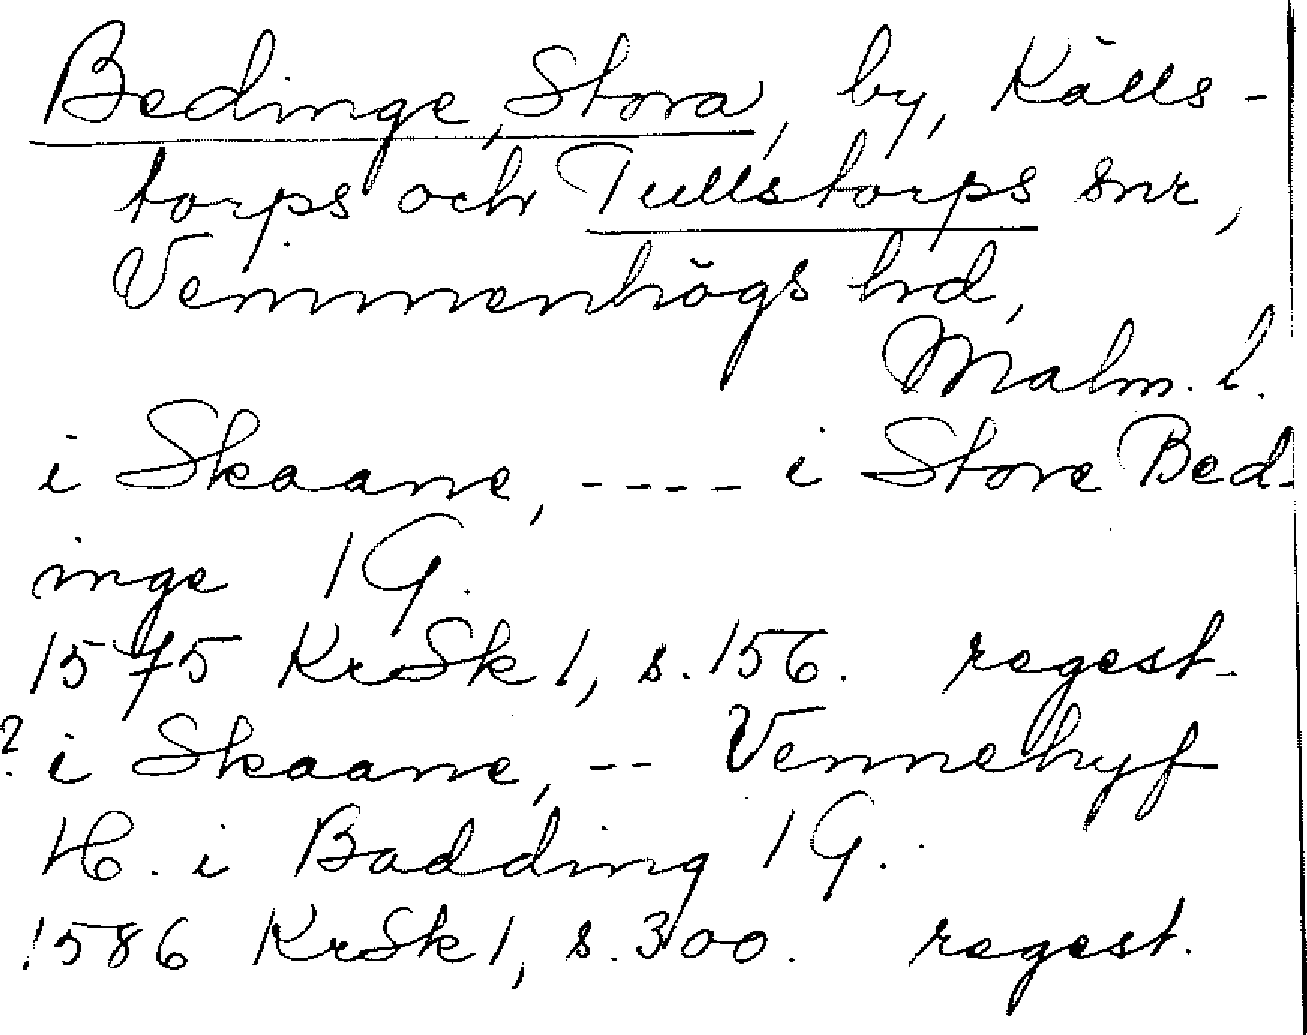 Bedinge, Stora, by, Källs-
torps och Tullstorps snr,
Vemmenhögs hd,
Malm. l.
i Skaane, ---- i Store Bed-
inge 1 G.
1575 KrSk 1, s. 156. regest.
? i Skaane, -- Vennehyf
H. i Badding 1 G.
1586 KrSk 1, s. 300. regest.